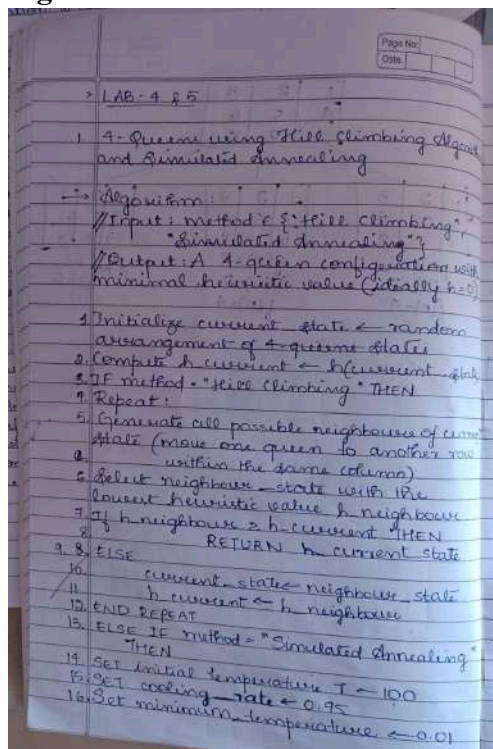 Page No:
Date:
> LAB-4 & 5
1. 4-Queens using Hill Climbing Algorit
and Simulated Annealing
→ Algorithm:
//Input: method ∈ {"Hill Climbing",
"Simulated Annealing"}
//Output: A 4-queen configuration with
minimal heuristic value (ideally h=0)
1. Initialize current_state ← random
arrangement of 4-queens states
2. Compute h_current ← h(current_state
3. IF method = "Hill Climbing" THEN
4. Repeat:
5. Generate all possible neighbours of current
state (move one queen to another row
within the same column)
6. Select neighbour_state with the
lowest heuristic value h_neighbour
7. If h_neighbour ≥ h_current THEN
8. RETURN h_current state
9. 8. ELSE
10. current_state ← neighbour_state
11. h_current ← h_neighbour
12. END REPEAT
13. ELSE IF method = "Simulated Annealing"
THEN
14. SET initial temperature T ← 100
15. SET cooling_rate ← 0.95
16. Set minimum_temperature ← 0.01